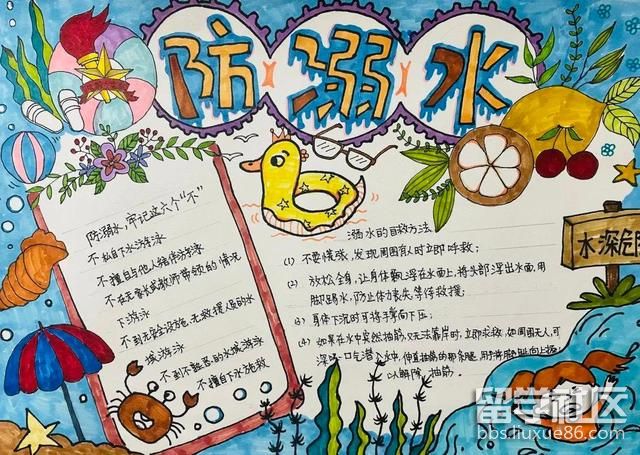 防溺水
防溺水，牢记这六个“不”
不私自下水游泳
不擅自与他人结伴游泳
不在无家长或教师带领的情况
下游泳
不到无安全设施、无救援人员的水
域游泳
不到不熟悉的水域游泳
不擅自下水施救
溺水的自救方法
(1) 不要慌张，发现周围有人时立即呼救；
(2) 放松全身，让身体飘浮在水面上，将头部浮出水面，用
脚踢水，防止体力丧失，等待救援
(3) 身体下沉时可将手掌向下压；
(4) 如果在水中突然抽筋，又无法靠岸时，立即求救，如周围无人，可
深吸一口气潜入水中，伸直抽筋的那条腿，用手将脚趾向上扳，
以解除抽筋。
水深危险
留学社区
bbs.liuxue86.com